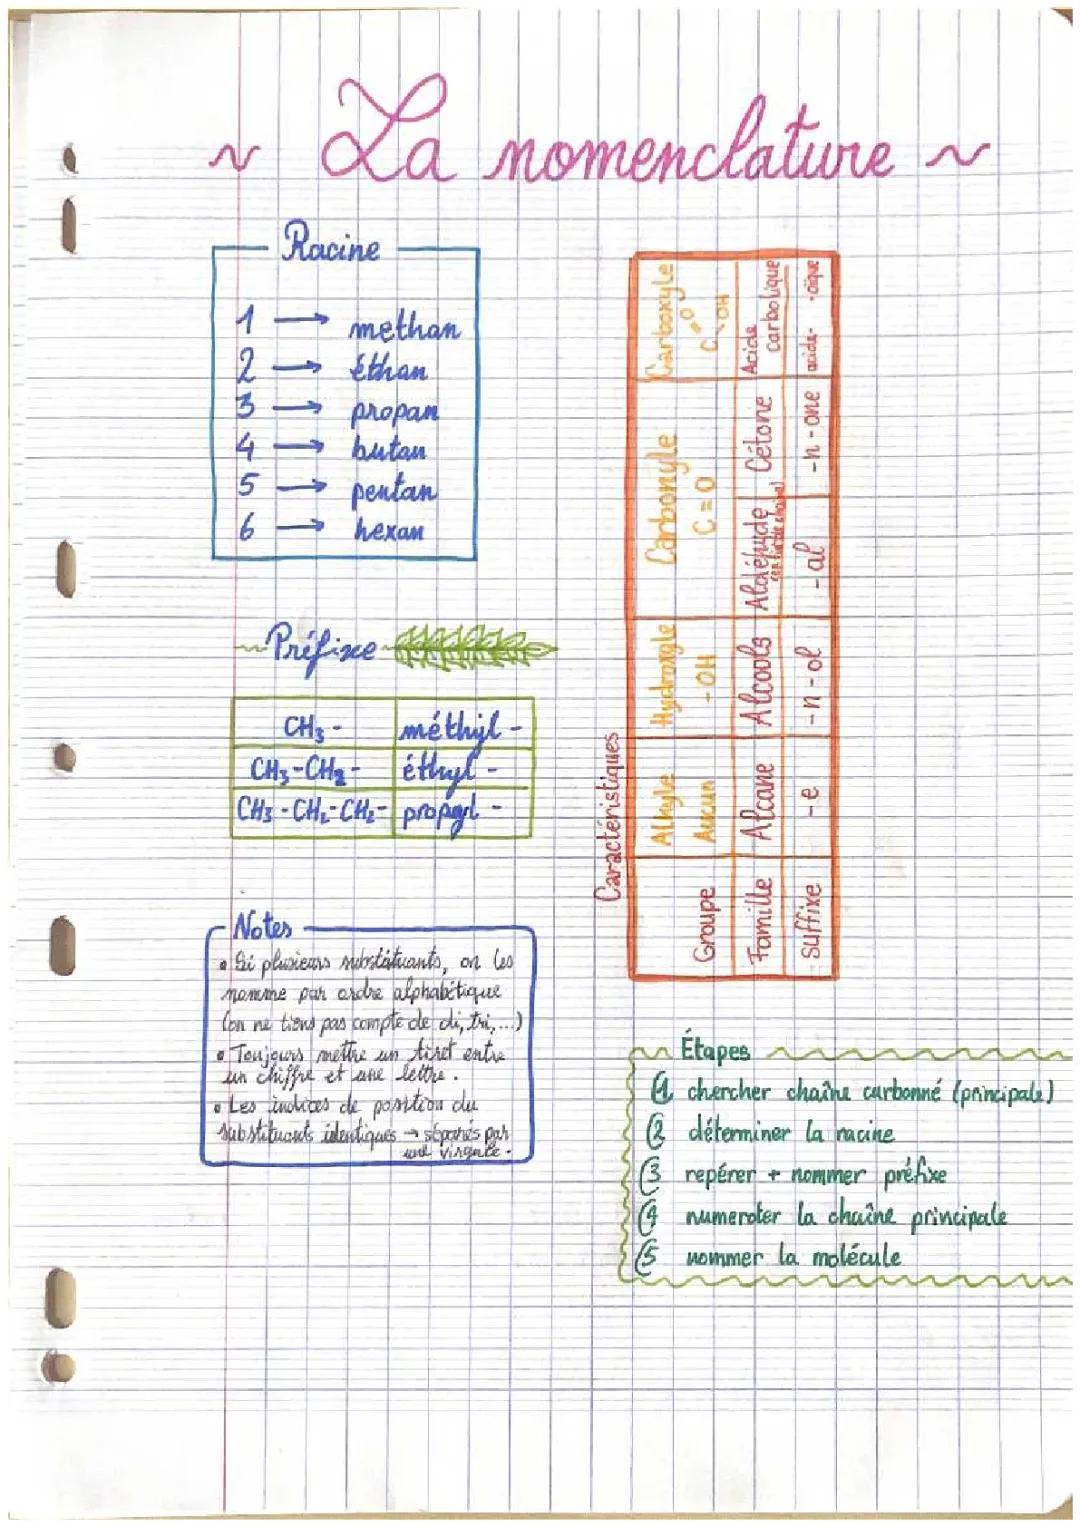 ~ La nomenclature ~
Racine
1 → methan
2 → éthan
3 → propan
4 → butan
5 → pentan
6 → hexan
Préfixe
CH₃ - méthyl -
CH₃-CH₂- éthyl -
CH₃-CH₂-CH₂- propyl -
Notes
• Si plusieurs substituants, on les
nomme par ordre alphabétique
(on ne tiens pas compte de di, tri,...)
• Toujours mettre un tiret entre
un chiffre et une lettre.
• Les indices de position du
substituants identiques → séparés par
une virgule.
Caractéristiques
Groupe Alkyle Hydroxyle Carbonyle Carboxyle
Aucun -OH C=O C=O OH
Famille Alcane Alcools Aldéhyde Cétone Acide
carbolique
Suffixe -e -n-ol -al -n-one acide- -oïque
Étapes
1 chercher chaîne carbonné (principale)
2 déterminer la racine
3 repérer + nommer préfixe
4 numeroter la chaîne principale
5 nommer la molécule